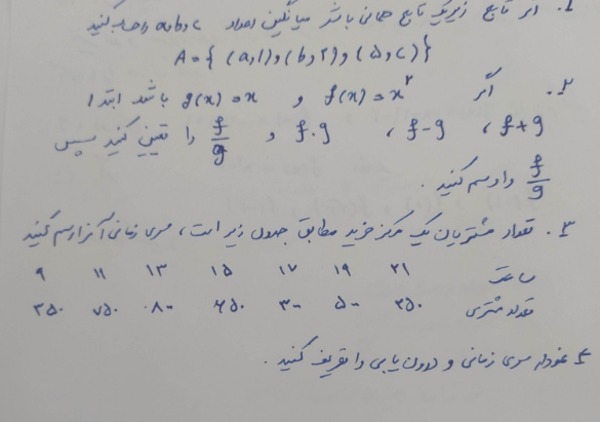 ۱. اگر تابع زیر یک تابع همانی باشد میانگین اعداد a و b و c را حساب کنید
A = { (a,1) و (b,۲) و (۵,c) }
۲. اگر f(x) = x² و g(x) = x باشد ابتدا
f+g ، f-g ، f.g و f/g را تعیین کنید سپس
f/g را رسم کنید.
۳. تعداد مشتریان یک مرکز خرید مطابق جدول زیر است، سری زمانی آنرا رسم کنید
ساعت ۲۱ ۱۹ ۱۷ ۱۵ ۱۳ ۱۱ ۹
تعداد مشتری ۲۵۰ ۵۰۰ ۳۰۰ ۴۵۰ ۸۰۰ ۷۵۰ ۳۵۰
۴ نمودار سری زمانی و درون یابی را تعریف کنید.